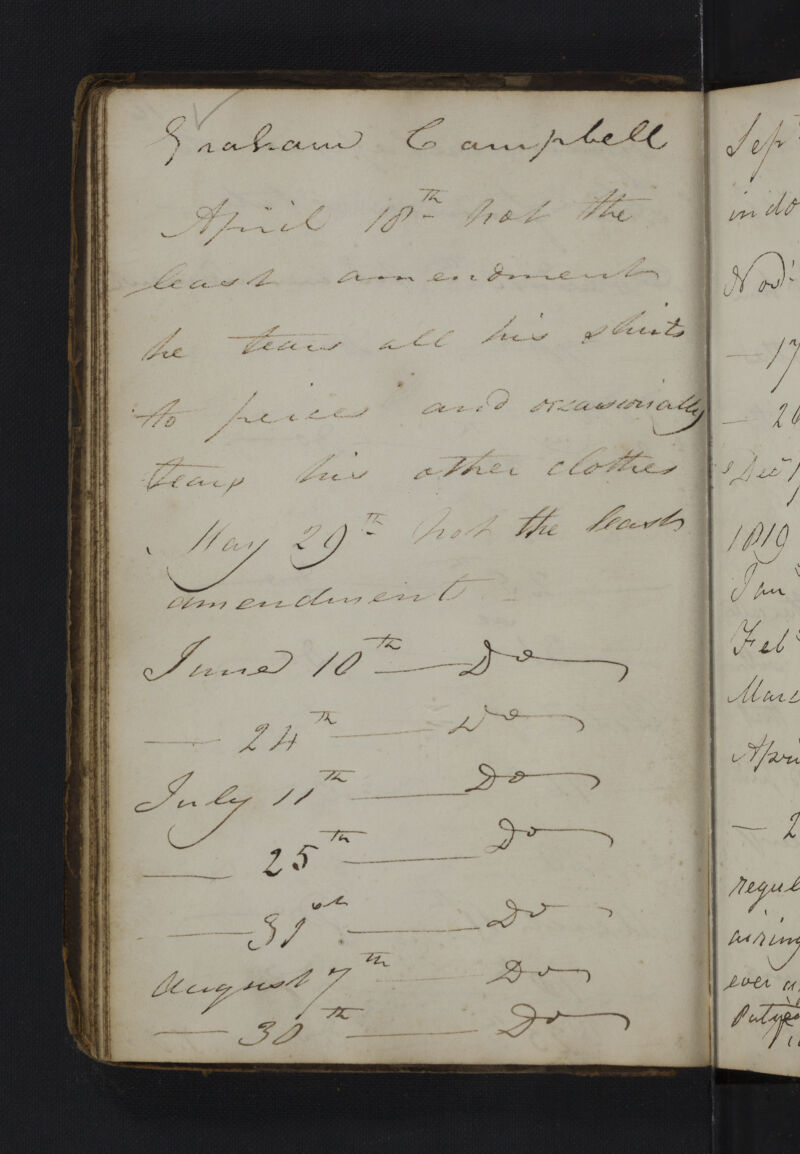 Graham Campbell
April 18th not the
least amendment
he tears all his shirts
to peices and occassionally
tears his other clothes
May 29th not the least
amendment
June 10th — Do
— 24th — Do
July 11th — Do
— 25th — Do
— 31st — Do
August 7th — Do
— 30th — Do
Sep
in do
Nov
— 17
— 2
Dec
1819
Jan
Feb
Marc
Apri
— 2
regul
airing
ever